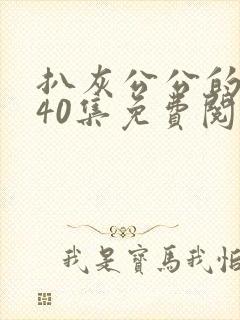 扒灰公公的
40集免費閱
我是寶馬我怕